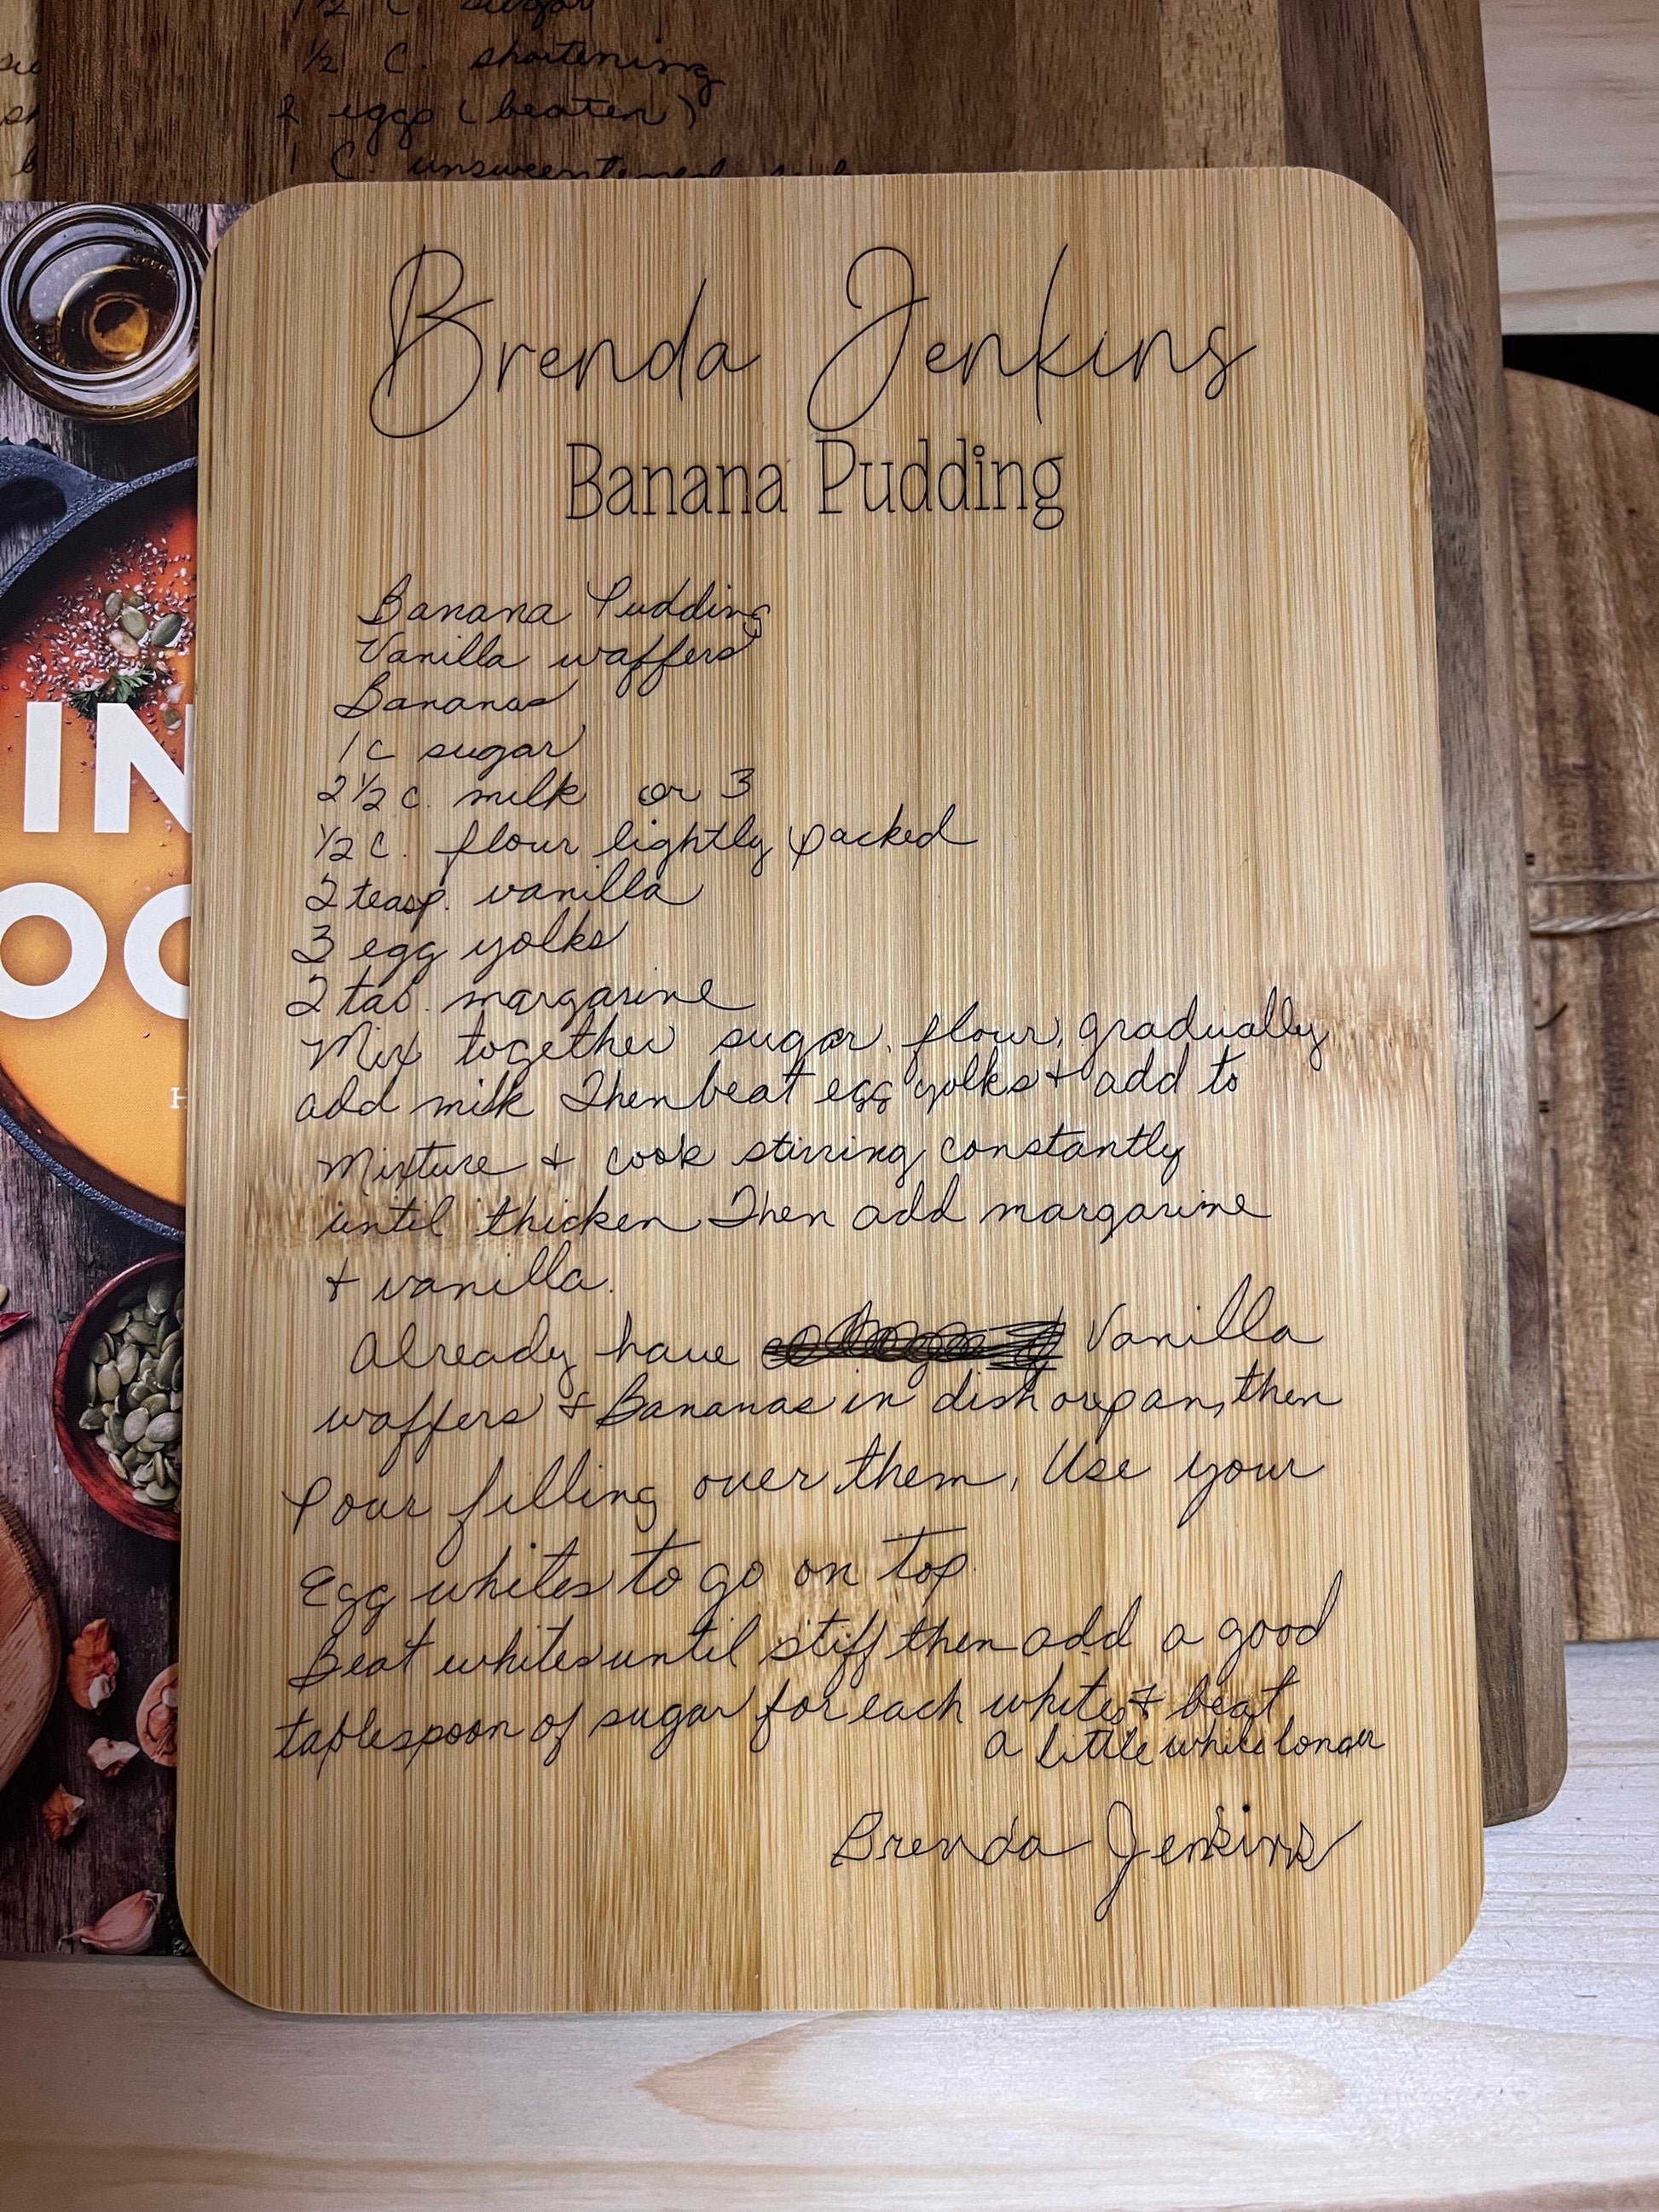 1/2 C. sugar
1/2 C. shortening
2 eggs (beaten)
1 C. unsweentened
IN
OO
H
Brenda Jenkins
Banana Pudding
Banana Pudding
Vanilla waffers
Bananas
1 C sugar
2 1/2 C. milk or 3
1/2 C. flour lightly packed
2 teasp. vanilla
3 egg yolks
2 tab. margarine
Mix together sugar, flour, gradually
add milk Then beat egg yolks & add to
Mixture & cook stirring constantly
until thicken Then add margarine
& vanilla.
Already have Vanilla
waffers & Bananas in dish or pan, then
Pour filling over them. Use your
Egg whites to go on top
Beat whites until stiff then add a good
tablespoon of sugar for each whites & beat
a little while longer
Brenda Jenkins